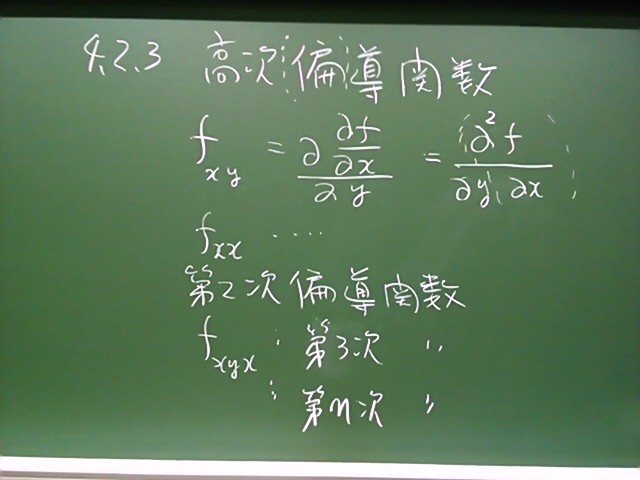 4.2.3 高次偏導関数
f_{xy} = ∂(∂f/∂x)/∂y = ∂²f/∂y∂x
f_{xx} ....
第2次偏導関数
f_{xyx} : 第3次 〃
: 第n次 〃